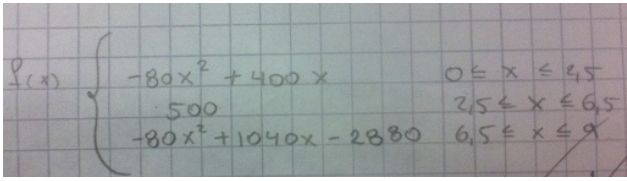 f(x) { -80x² + 400x 0 ≤ x ≤ 2,5
500 2,5 ≤ x ≤ 6,5
-80x² + 1040x - 2880 6,5 ≤ x ≤ 9